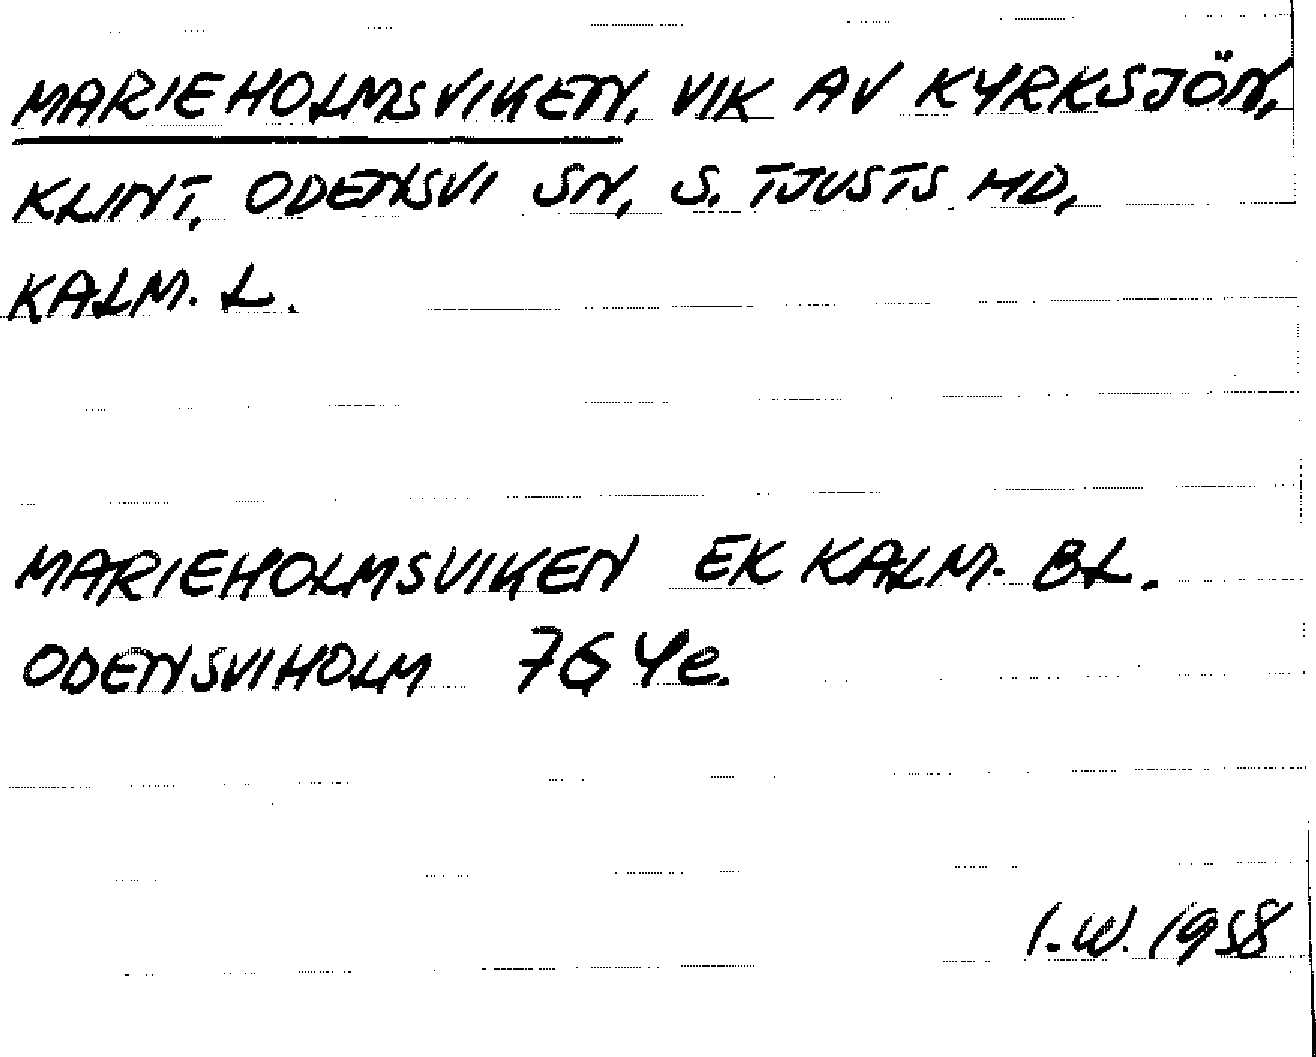 MARIEHOLMSVIKEN, VIK AV KYRKSJÖN,
KLINT, ODENSVI SN, S. TJUSTS HD,
KALM. L.
MARIEHOLMSVIKEN EK KALM. BL.
ODENSVIHOLM 7G 4e.
I.W. 1958